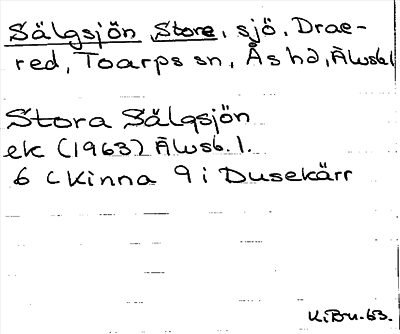 Sälgsjön, Store, sjö, Drae-
red, Toarps sn, Ås hd, Älvsb.l
Stora Sälgsjön
ek (1963) Älvsb. l.
6 C Kinna 9 i Dusekärr
K.Bn-63.